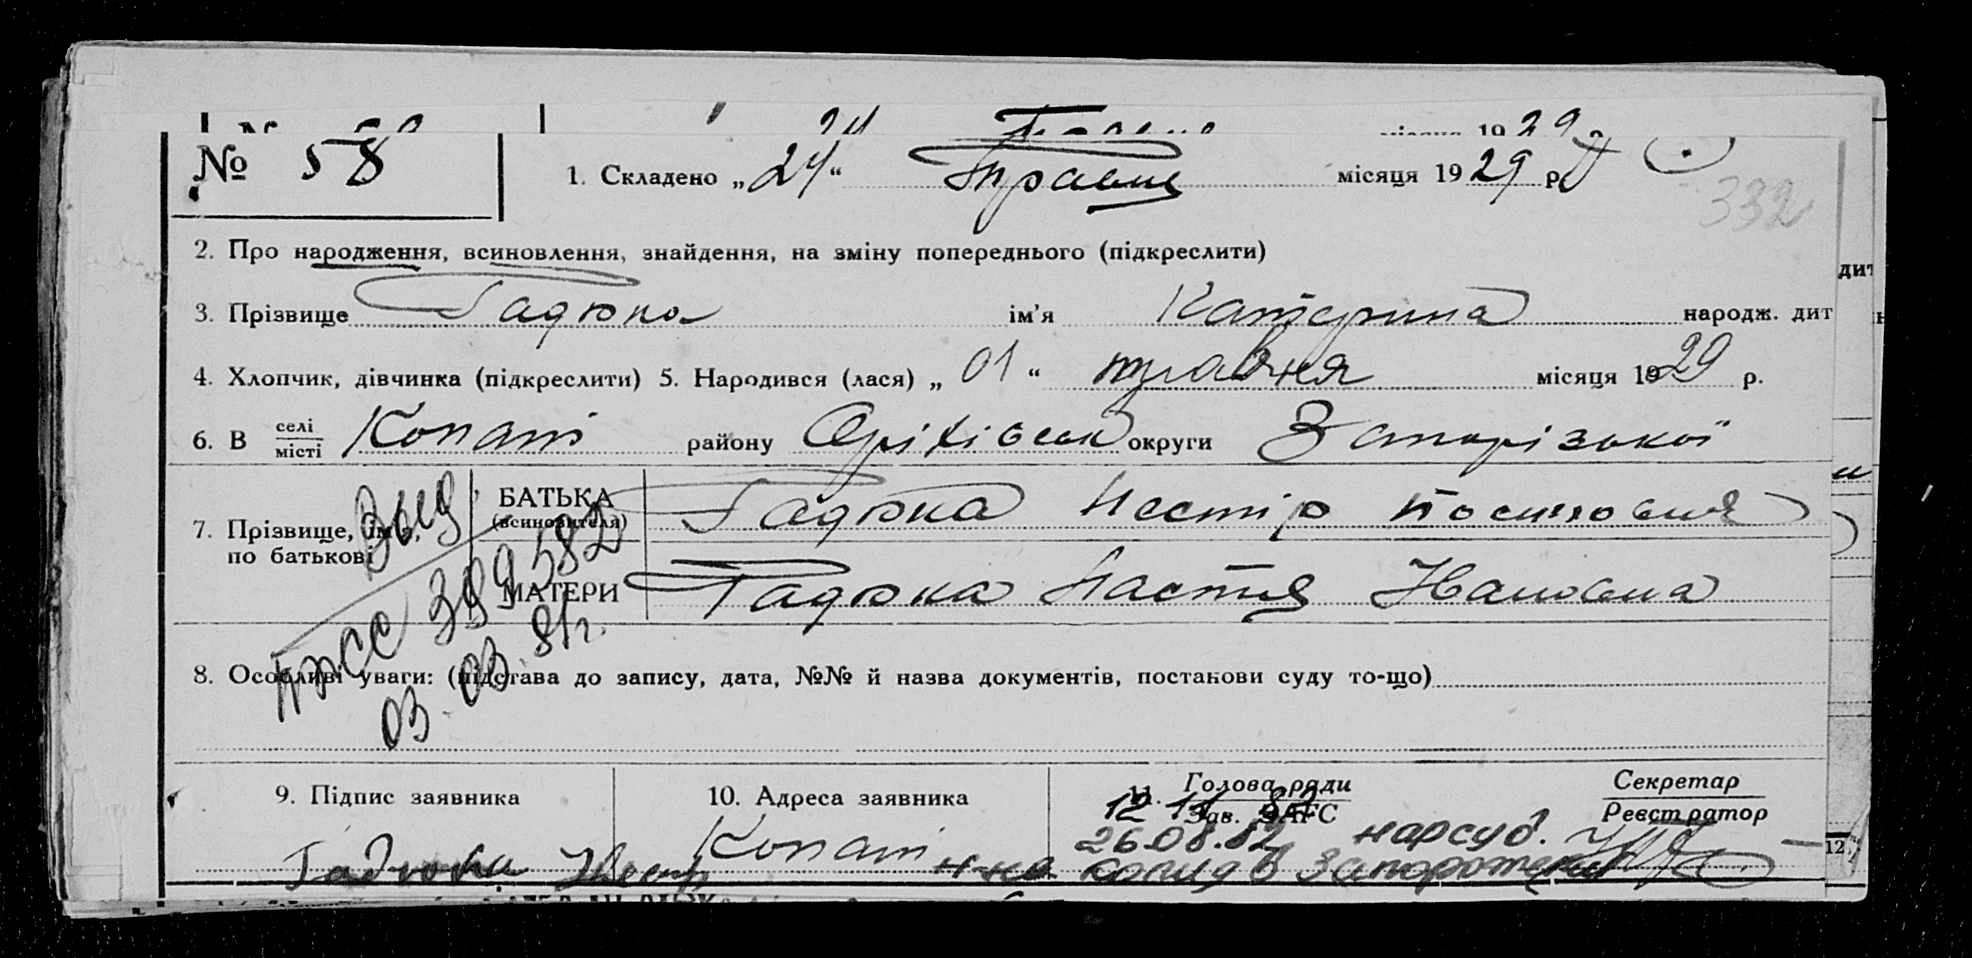 № 58
1. Складено „24“ Травня місяця 1929 р.
332
2. Про народження, всиновлення, знайдення, на зміну попереднього (підкреслити)
3. Прізвище Гадюка ім'я Катерина народж. дит
4. Хлопчик, дівчинка (підкреслити) 5. Народився (лася) „01“ травня місяця 1929 р.
6. В селі місті Копані району Оріхівськ округи Запорізької
7. Прізвище, ім'я, по батькові
БАТЬКА (всиновителя) Гадюка Нестір
МАТЕРИ Гадюка Настя Івановна
8. Особливі уваги: (підстава до запису, дата, №№ й назва документів, постанови суду то-що)
399582
03.03.81г.
9. Підпис заявника 10. Адреса заявника 11. Голова ради Зав. ЗАГС Секретар Реєстратор
Гадюка Нест Копані
26.08.82 нарсуд.
копия в